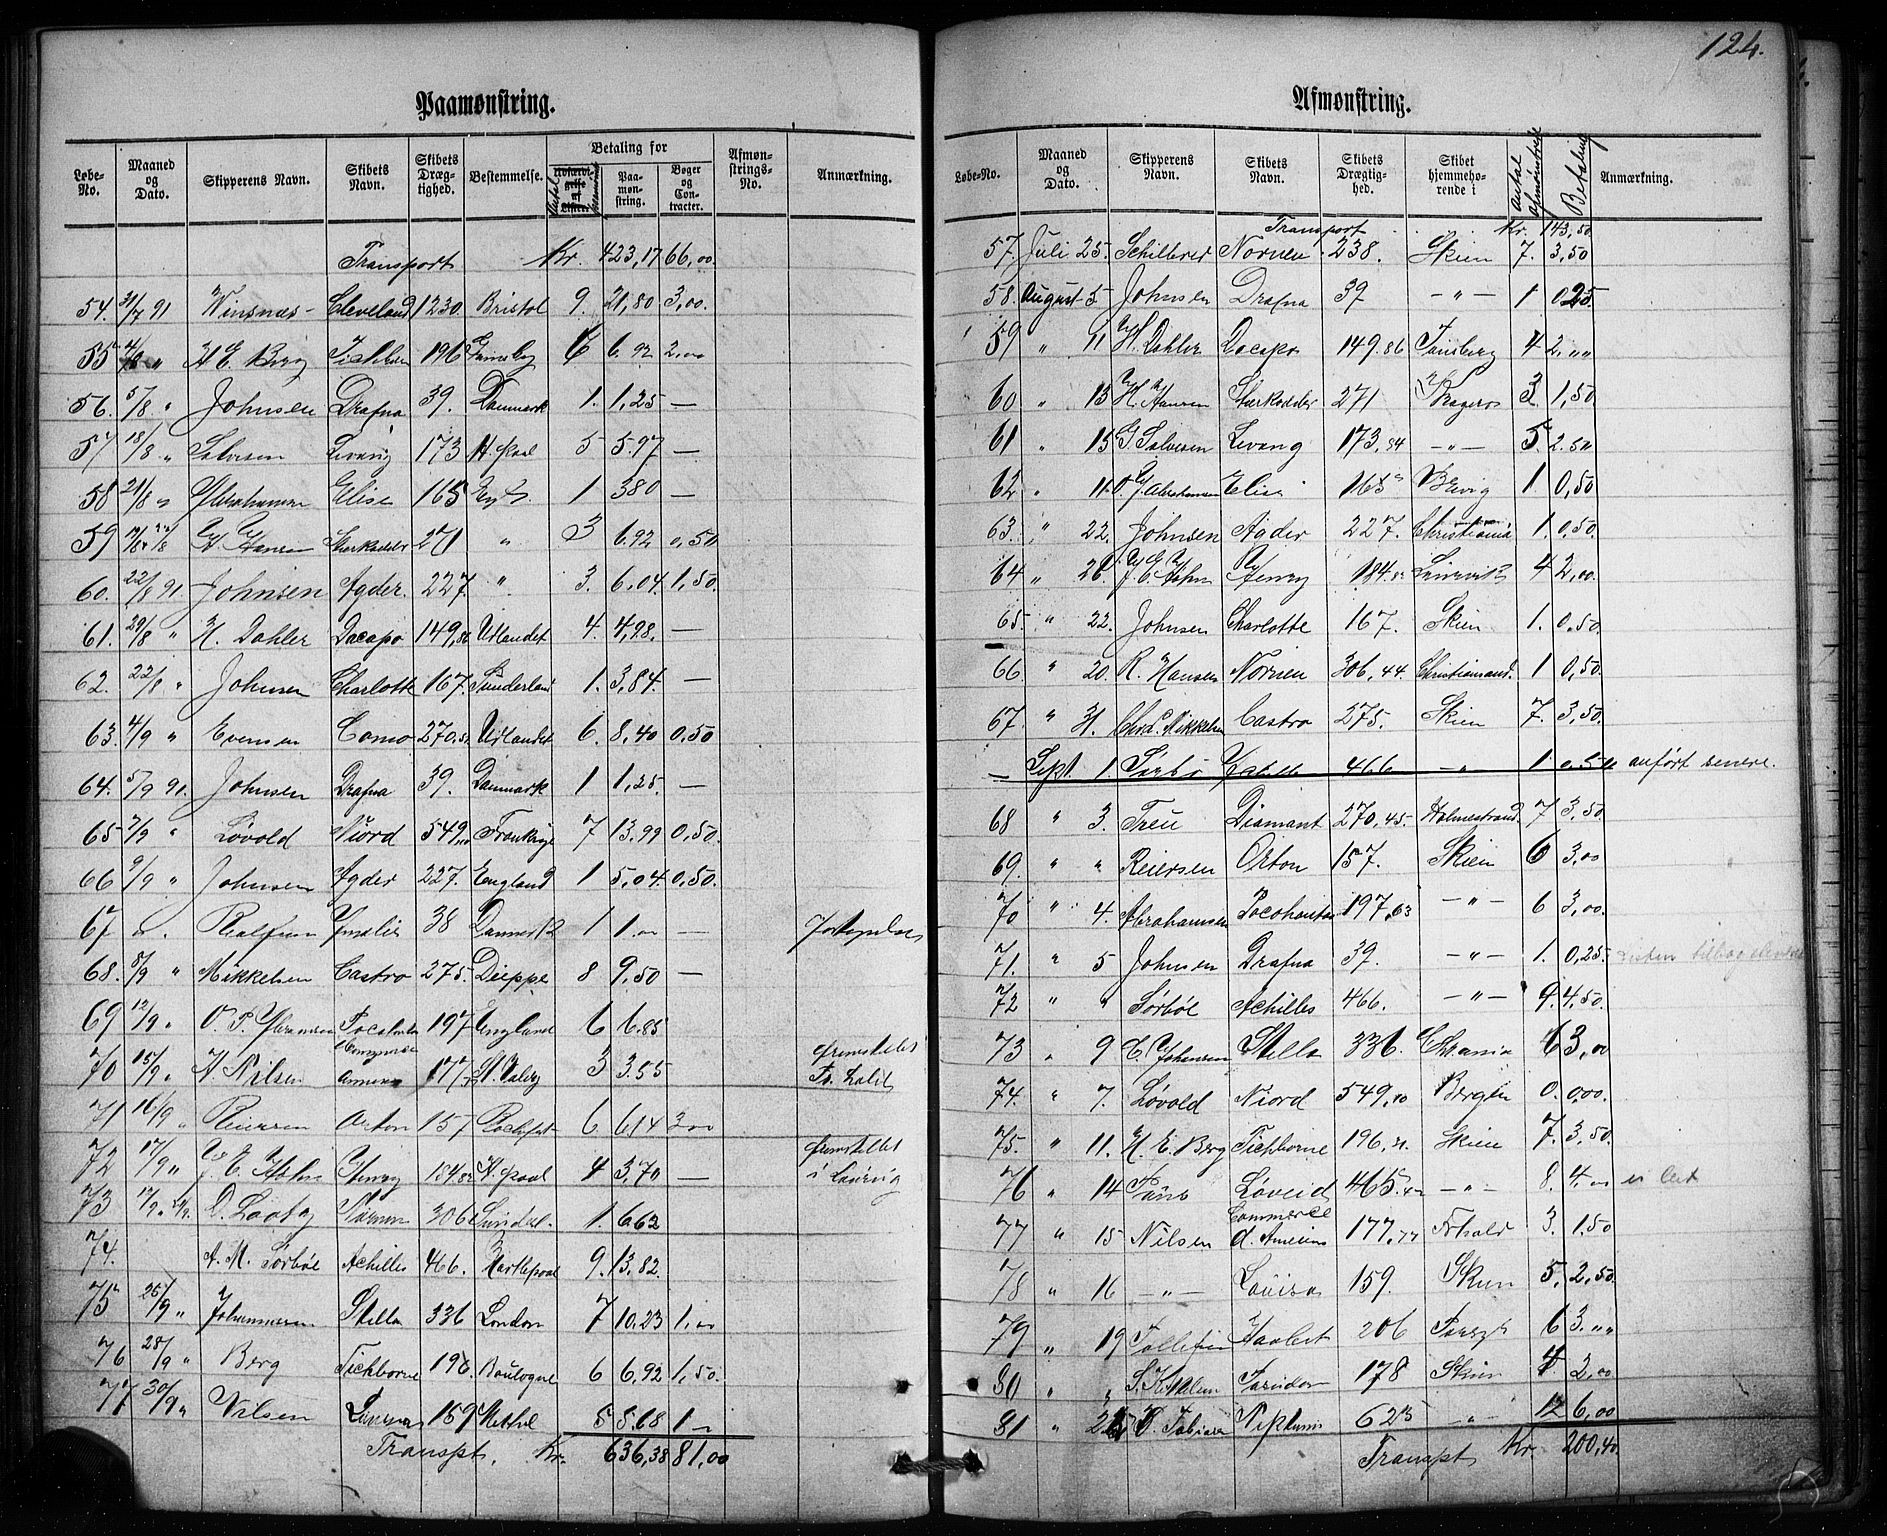 124.
Paamønstring.
Løbe-No. Maaned og Dato. Skipperens Navn. Skibets Navn. Skibets Drægtighed. Bestemmelse. Betaling for Antal paamønstr. Paamønstring. Bøger og Contracter. Afmønstrings-No. Anmærkning.
Transport Kr. 423,17 66,00
54. 31/7 91 Winsnæs Cleveland 1230. Bristol 9. 21,80 3,00.
55 " H E. Berg Tichborn 196 6 6.92 2,00
56. 5/8 " Johnsen Drafna 39. Danmark 1. 1,25 —
57 18/8 " Salvesen Levang 173 H.pool 5 5.97 —
58 21/8 " Abrahamsen Elise 165 Engl. 1 380 —
59 H. Hansen Stærkodder 271 " 3 6.92 0,50
60. 22/8 91. Johnsen Agder. 227. " 3. 6,04. 1,50.
61. 29/8 " H. Dahler Dacapo 149,86 Udlandet 4. 4,98. —
62. 22/8 " Johnsen Charlotte 167. Sunderland 1. 3,84. —
63. 4/9 " Evensen Como 270.51 Udlandet 6. 8,40 0,50
64. 5/9 91. Johnsen Drafna 39. Danmark 1 1,25. —
65 7/9 " Løvold Niord 549,10 Frankrige 7 13,99 0,50.
66 9/9 " Johnsen Agder 227. England 1 5,04. 0,50.
67 ". Amalie 38 Danmark 1 1.00 —
68. 8/9 " Mikkelsen Castro 275. Dieppe 8 9,50 —
69 12/9 " O. P. Abrahamsen Pocahontas 197 England 6 6.85
70 15/9 " H. Nilsen Commerce America 177,77 St. Valery 3 3.55 fremstillet Fr. hald
71 16/9 " Reiersen Orton 157 Rochefort 6 614 3 00
72 17/9 " J. C. Hahn Henry 184.82 H.pool 4 3,70 — fremstillet i Laurvig
73 D. Nornen 306 Sunderl. 1. 662
74. A. M. Sørbøe Achilles 466. Hartlepool 9. 13,82.
75 26/9 " Johannesen Stella 336 London 7 10.23 1,00
76 28/9 " Berg Tichborne 196 Boulogne 6 6,92 1,50.
77 30/9 " Nilsen Lovisa 159 Methil 5 5.68 1 —
Transpt. Kr. 636,38 81,00
Afmønstring.
Løbe-No. Maaned og Dato. Skipperens Navn. Skibets Navn. Skibets Drægtighed. Skibet hjemmehørende i Antal afmønstrede Betaling Anmærkning.
Transport Kr. 143,50
57. Juli 25. Schilbred Nornen 238. Skien 7. 3,50
58. August 5 Johnsen Drafna 39 — " — 1 0,25.
59 " 11 H. Dahler Dacapo 149.86 Tønsberg 4 2.,,
60 " 13 H. Hansen Stærkodder 271 Kragerø 3 1,50
61 " 15 G Salvesen Levang 173,84 — " — 5. 2.50
62 " 11. O. J. Abrahamsen Elise 165 Brevig 1 0,50
63. " 22. Johnsen Agder 227. Christiania 1. 0,50.
64 " 26. J. C. Hahn Henry 184.82 Laurvik 4 2,00.
65. " 22. Johnsen Charlotte 167. Skien 1. 0,50.
66. " 20. R. Hansen Nornen 306,44. Christiansand. 1 0,50.
67. " 31. Chrd. Mikkelsen Castro 275. Skien 7. 3,50.
Sept. 1. Sørbø 466 — " — 1 0,50 anført senere.
68 " 3. Treu Diamant 270,45. Holmestrand 7 3,50.
69. " " Reiersen Orton 157. Skien 6 3,00
70 " 4. Abrahamsen Pocohontas 197,63 — " — 6 3,00.
71. " 5 Johnsen Drafna 39. — " — 1. 0,25. Listen tilbagelevert
72 " " Sørbøe Achilles 466. — " — 9. 4,50.
73 " 9 C. Johansen Stella 336. Chrania 6 3,00
74. " 7. Løvold Niord 549,10 Bergen 0. 0,00.
75. " 11. H. E. Berg Tichborne 196,21. Skien 7. 3,50.
76 " 14 Løveid 465.42 — " — 8. 4,00
77 " 15 Nilsen Commerce d. Americ 177,77 Frhald 3. 1.50
78 " 16 — " — Lovisa 159. Skien 5. 2,50.
79 " 19 Tollefsen Haabet 206 Porsgr 6 3.,,
80 " " 178 Skien 4 2,00
81 " 25 Tobiasen Neptunus 625 — " — 12 6,00
Transpt Kr. 200,40